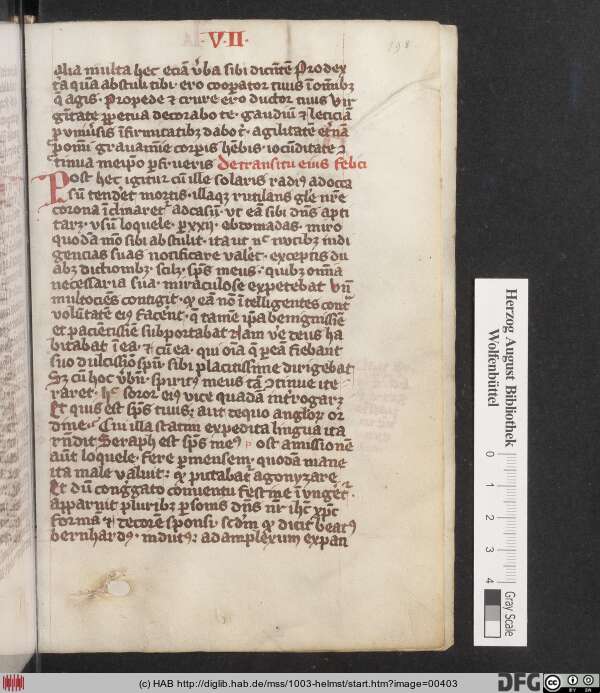 ·V·II·
198
alia multa hec eciā v̄ba sibi dicētē Pro dex
t̄a quā abstuli tibi · ero coop̄ator tuus ī om̄ibꝫ
q̄ agis · Pro pede ⁊ crure ero ductor tuus Vir
gītate ꝑpetua decorabo te · gaudiū ⁊ leticiā
ꝑ vniũsis īfirmitatibꝫ dabo t̄ · agilitatē et̄nā
ꝑ om̄i grauamīe corꝑis hēbis · iocūditatē ⁊
tinua meip̄o ꝑfrueris De transitu eius felici
Post hec igitur cū ille solaris radiꝰ ad occa
sū tend̄et mortis · illaqꝫ rutilans gl̄e nr̄e
corona īclinaret᷑ ad casū · vt eā sibi dn̄s apti
tarꝫ · vsū loquele · ꝑ xxii · ebtomadas · miro
quodā mō sibi abstulit · ita ut nͨ nutibꝫ indi
gencias suas notificare valet᷑ · exceptis du
abꝫ dictionibꝫ · scilꝫ · sp̄s meus · quibꝫ om̄ia
necessaria sua · miraculose expetebat Vn̄
multociēs contigit · ꝙ eā nō ītelligentes cont̄
volūtatē eiꝰ facerēt · q̄ tamē ip̄a benignissīe
et paciētissīe subportabat
bitabat ī ea · ⁊ cū ea · qui oīa q̄ ꝑ eā fiebant
suo dulcissīo sp̄ui sibi placitissīe dirigebat
Sꝫ cū hoc v̄bū · spiritꝰ meus tā ↄtinue ite
raret · hͨ soror eiꝰ vice quadā īterrogarꝫ
Et quis est sp̄s tuus · aut de quo angloꝝ or
dīe · Cui illa statim expedita lingua ita
rn̄dit Seraph est sp̄s meꝰ Post amissionē
aūt loquele · fere ꝑ mensem · quodā mane
ita male valuit · ꝙ putabat᷑ agonyzare
Et dū conḡgato conuentu festīe īunget᷑ ·
apparuit pluribꝫ ꝑsonis dn̄s nr̄ ihc xp̄c
forma ⁊ decore sponsi · scd̄m ꝙ dicit beatꝰ
bernhardꝰ · indutꝰ · ad amplexum expan
Herzog August Bibliothek
Wolfenbüttel
0 1 2 3 4
Gray Scale
(c) HAB http://diglib.hab.de/mss/1003-helmst/start.htm?image=00403
DFG
CC BY SA